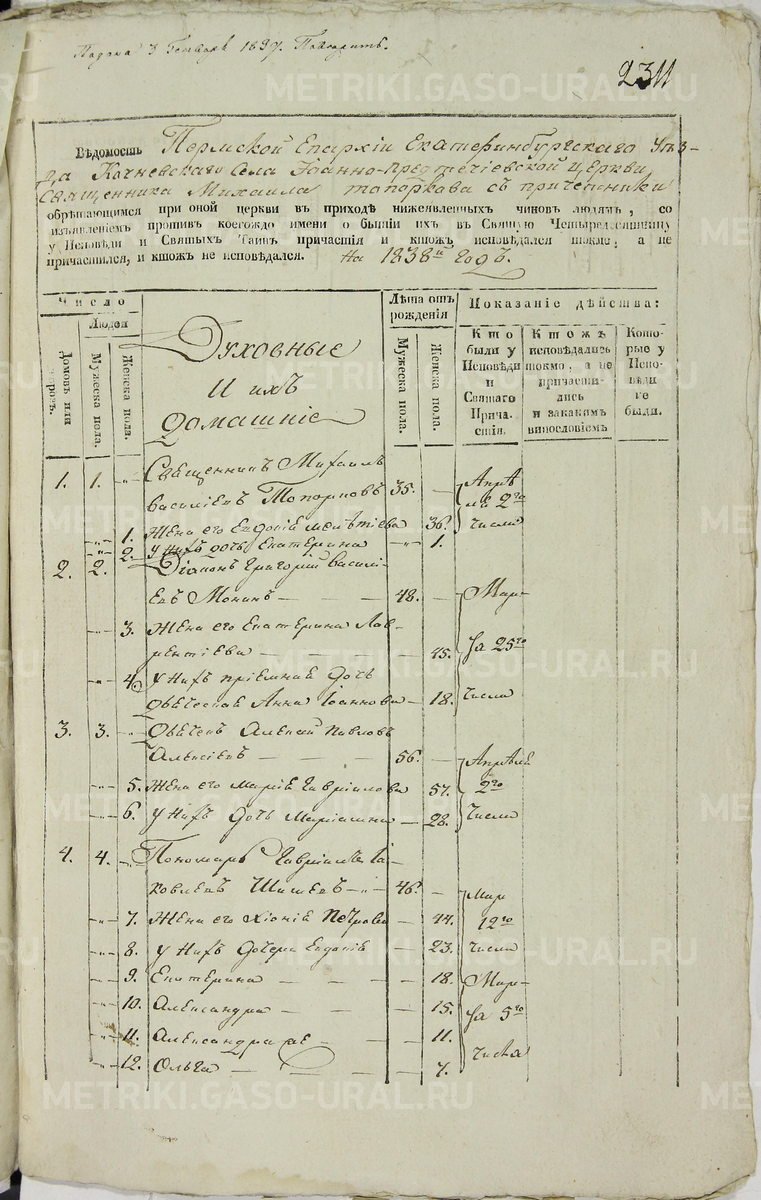 1837.
2311
Вѣдомость Пермской Епархіи Екатеринбургскаго Уѣз-
да Кочневскаго Села Іоанно-Предтечіевской церкви
Священника Михаила Топоркова съ причетники
обрѣтающимся при оной церкви въ приходѣ нижеявленныхъ чиновъ людямъ, со
изъявленіемъ противъ коегождо имени о бытіи ихъ въ Святую Четыредесятницу
у Исповѣди и Святыхъ Таинъ причастія и ктожъ исповѣдался токмо, а не
причастился, и ктожъ не исповѣдался. На 1838й годъ.
Число
Людей
Домовъ или
дворов.
Мужеска пола.
Женска пола.
Духовные
И ихъ
домашніе
Лѣта отъ
рожденія
Мужеска пола.
Женска пола.
Показаніе дѣйства:
Кто
были у
Исповѣди
и
Святаго
Прича-
стія.
Ктожъ
исповѣдались
токмо, а не
причасти-
лись
и закакимъ
винословіемъ
Кото-
рые у
Испо-
вѣди
не
были.
1. 1. -"- Священникъ Михаилъ
Василіевъ Топорковъ 35. — Апрѣ-
ля 2го
числа
-"- 1. Жена его Евдокія 36.
-"- 2. У нихъ дочь Екатерина -"- 1.
2. 2. Діаконъ Григорій Василі-
евъ Мокинъ — — — 48. — Мар-
та 25го
числа
-"- 3. Жена его Екатерина Лав-
рентіева — — — 45.
-"- 4. У нихъ пріемная дочь
дѣвическая Анна Іоаннова — 18.
3. 3. -"- Алексій Павловъ
Алексіевъ — — — 56. — Апрѣля
2го
числа
-"- 5. Жена его Марія Гавріилова 57.
-"- 6. У нихъ дочь Маріамна — 28.
4. 4. -"- Пономарь Гавріилъ Іа-
ковлевъ Шишевъ -"- 46. — Мар
12го
числа
-"- 7. Жена его Хіонія Петрова — 44.
-"- 8. У нихъ дочери Евдокія — 23.
-"- 9. Екатерина — — — 18. Мар-
та 5го
числа
-"- 10. Александра — — — 15.
-"- 11. Александра же — — 11.
-"- 12. Ольга — — — 7.
METRIKI.GASO-URAL.RU